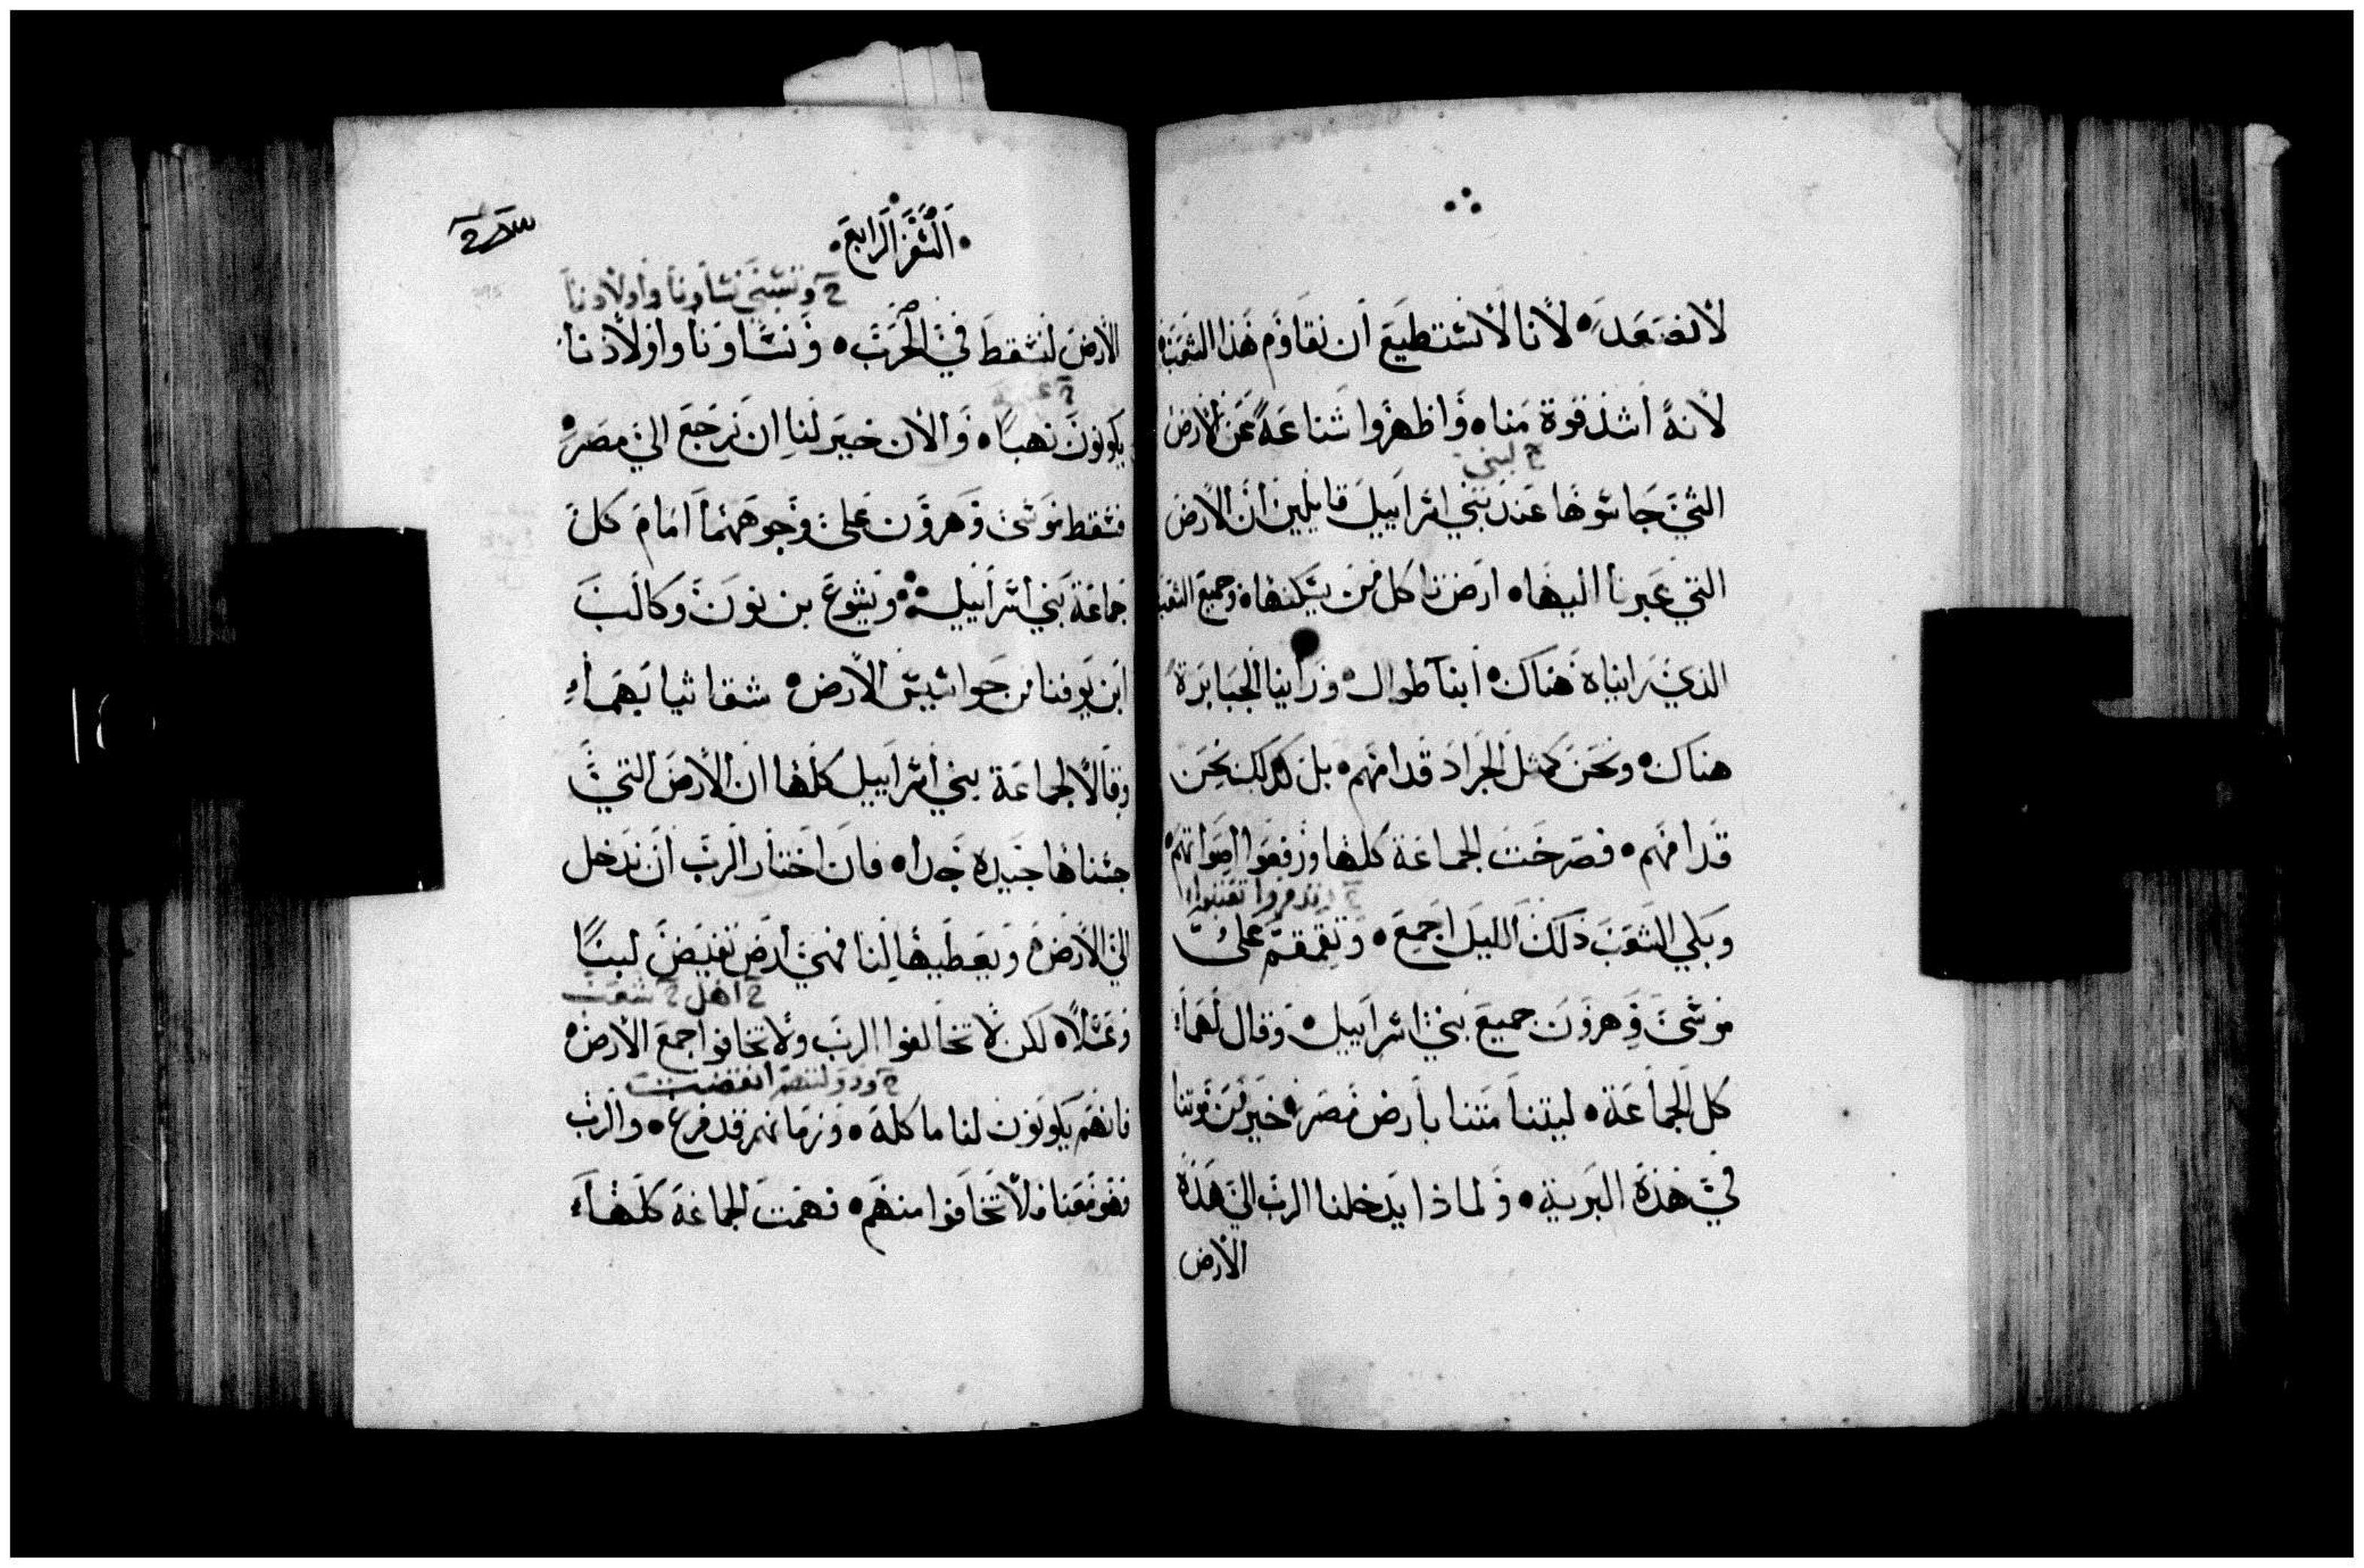 لا نصعد لانا لا نستطيع ان نقاوم هذا الشعب
لانه اشد قوة منا واظهروا شناعة عن الارض
ح لبني
التي جاسوها عند بني اسراييل قايلين ان الارض
التي عبرنا اليها ارض تاكل من يسكنها وجميع الشعب
الذي رايناه هناك ابنا طوال وراينا الجبابرة
هناك ونحن كمثل الجراد قدامهم بل كذلك نحن
قدامهم فصرخت الجماعة كلها ورفعوا اصواتهم
وبكي الشعب ذلك الليل اجمع وتقمقم علي
موسي وهرون جميع بني اسراييل وقال لهما
كل الجماعة ليتنا متنا بارض مصر خير من موتنا
في هذه البرية ولماذا يدخلنا الرب الي هذه
الارض
السفر الرابع
ح وتسبي نساونا واولادنا
الارض لنسقط في الحرب ونساونا واولادنا
يكونون نهبا والان خير لنا ان نرجع الي مصر
فسقط موسي وهرون علي وجوههما امام كل
جماعة بني اسراييل ويشوع بن نون وكالب
ابن يوفنا من جواسيس الارض شقا ثيابهما
وقالا لجماعة بني اسراييل كلها ان الارض التي
جسناها جيده جدا فان اختار الرب ان ندخل
الي الارض ويعطيها لنا فهي ارض تفيض لبنا
ح اهل ح شعب
وعسلا لكن لا تخالفوا الرب ولا تخافوا جمع الارض
فانهم يكونون لنا ماكلة وزمانهم قد فرغ والرب
فهو معنا فلا تخافوا منهم فهمت الجماعة كلها